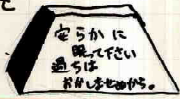 安らかに
眠って下さい
過ちは
おかしませぬから。